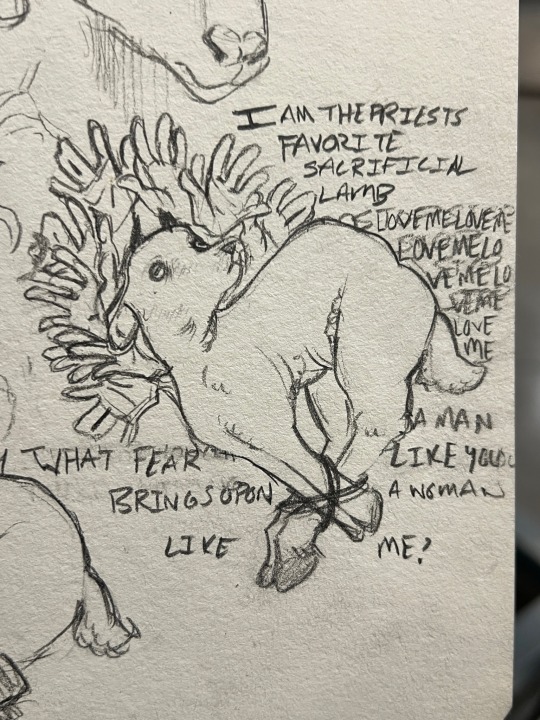 I AM THE PRIESTS
FAVORITE
SACRIFICIAL
LAMB
LOVEMELOVEME
LOVEMELO
VEMELO
VEME
LOVE
ME
A MAN
LIKE YOU
WHAT FEAR
BRINGS OPON
A WOMAN
LIKE
ME?